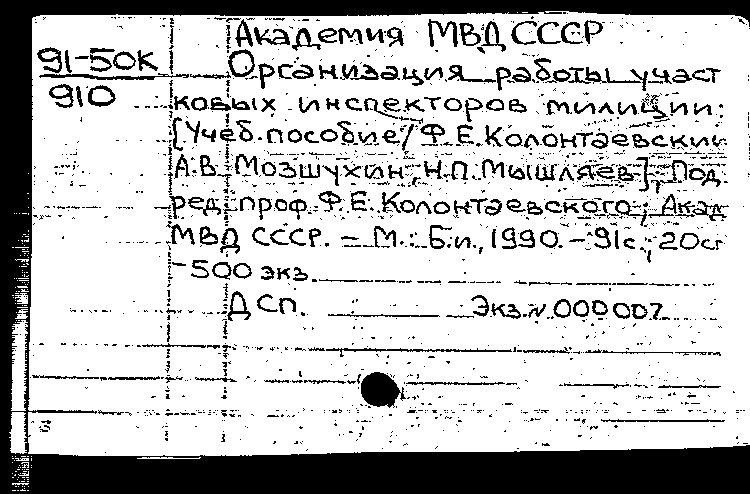 Академия МВД СССР
91-50К
910
Организация работы участ
ковых инспекторов милиции:
[Учеб.пособие/Ф.Е.Колонтаевский
А.В. Мозшухин, Н.П.Мышляев]; Под.
ред. проф. Ф.Е.Колонтаевского; Акад
МВД СССР. - М.: Б.и., 1990. - 91с.; 20см
-500 экз.
ДСП. Экз.N 000007